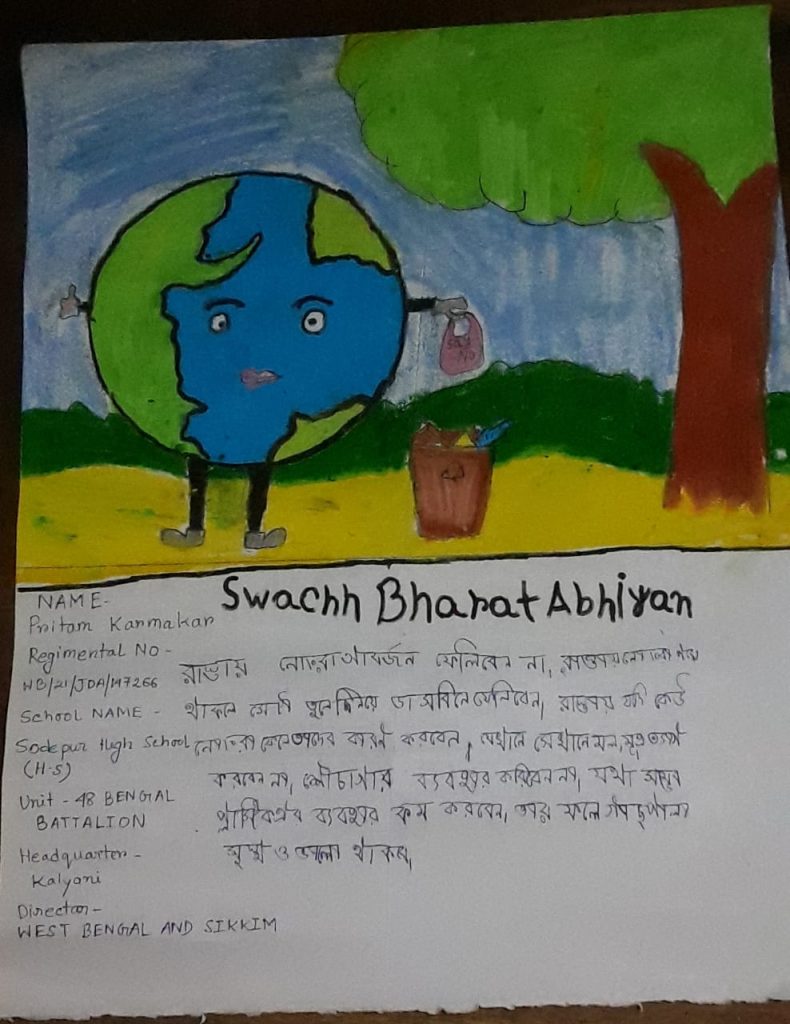 Swachh Bharat Abhiyan
NAME-
Pritam Karmakar
Regimental No -
WB/21/JDA/M7266
School NAME -
Sodepur High School
(H-S)
Unit - 48 BENGAL
BATTALION
Headquarter -
Kalyani
Director-
WEST BENGAL AND SIKKIM
রাস্তায় নোংরা আবর্জন ফেলিবেন না,
থাকলে সেটি তুলে নিয়ে ডাসবিনে ফেলিবেন, রাস্তায় যদি কেউ
নোংরা ফেলে তাদের বারন করবেন, যেখানে সেখানে মল, মূত্র ত্যাগ
করবেন না, শৌচাগার ব্যবহার করিবেন
প্লাস্টিকের ব্যবহার কম করবেন, তার ফলে
সুস্থ ও ভালো থাকব,